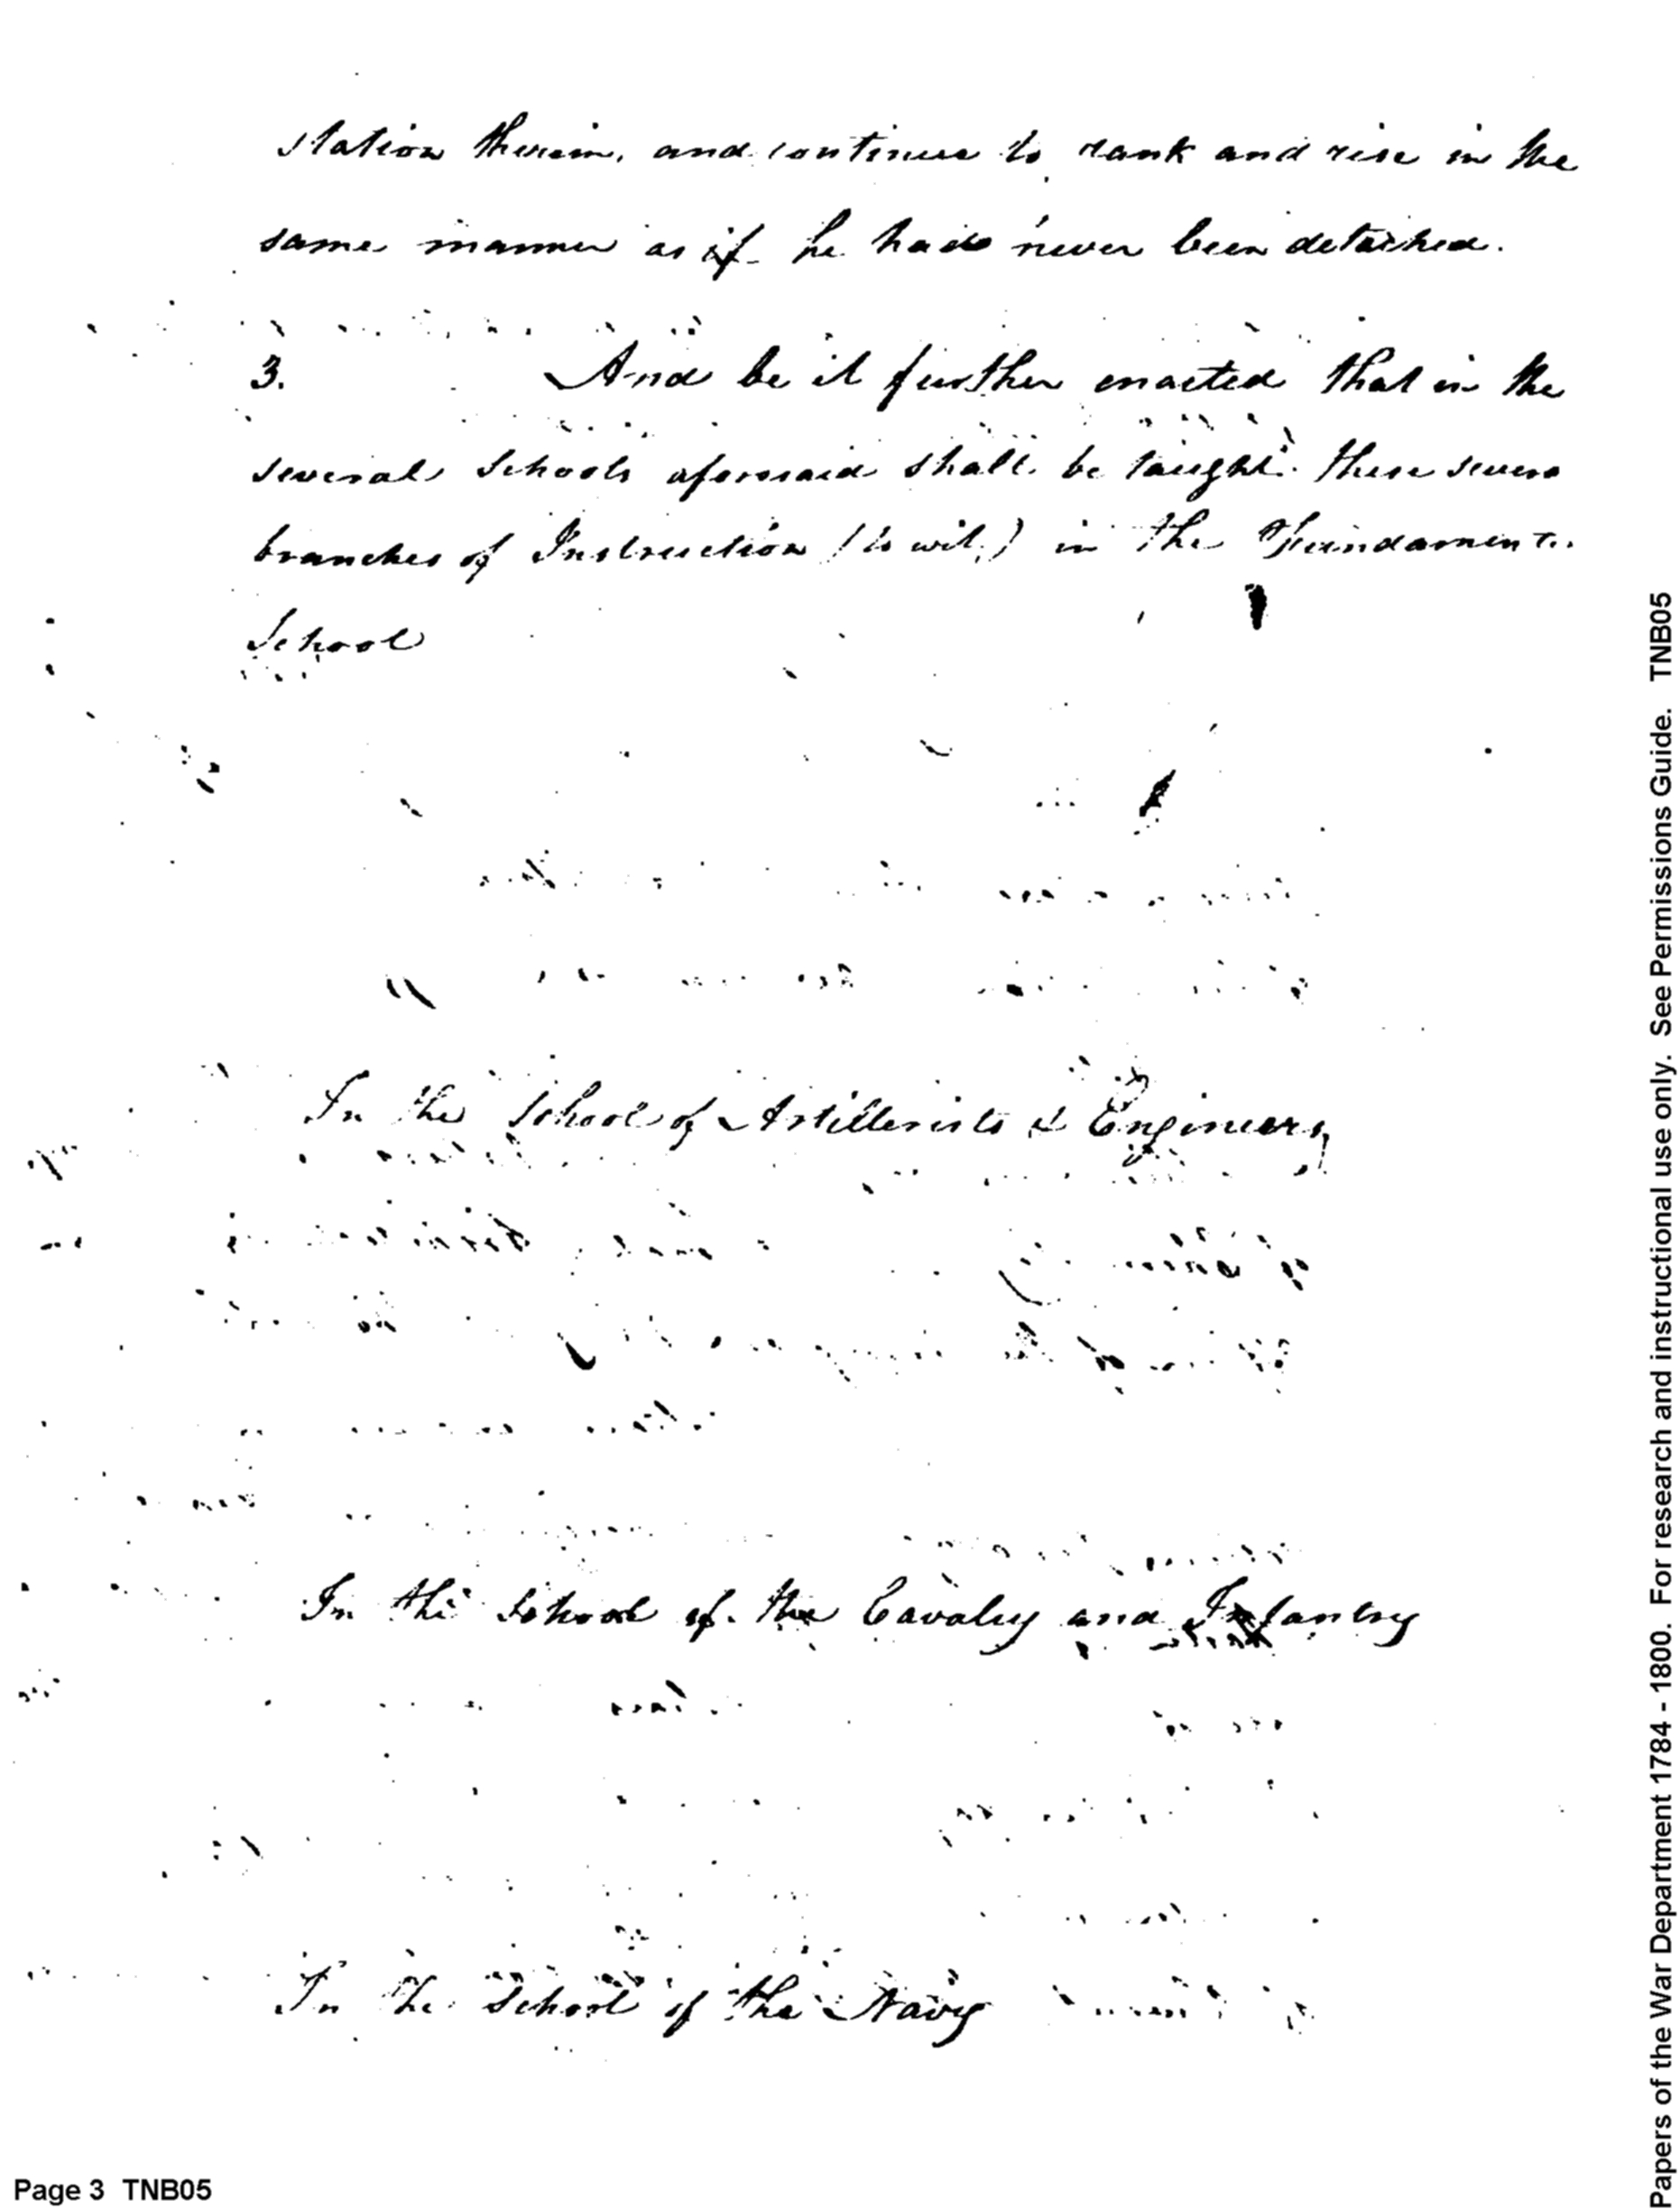 station therein, and continue to rank and rise in the
same manner as if he had never been detached.
3. And be it further enacted that in the
several Schools aforesaid shall be taught these severa
branches of Instruction (to wit,) in the Fundament
School
In the School of Artillerists & Engineers,
In the School of the Cavalry and Infantry
In the School of the Navy
Page 3 TNB05
Papers of the War Department 1784 - 1800. For research and instructional use only. See Permissions Guide. TNB05